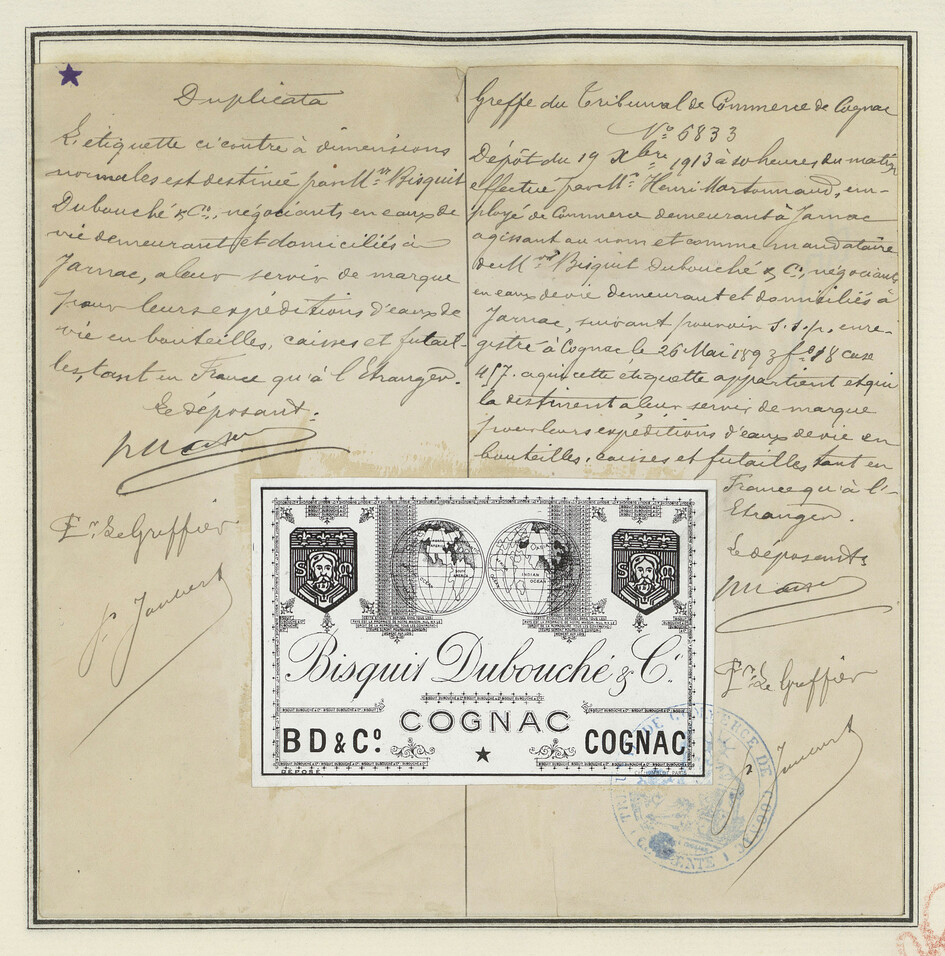 Duplicata
L'étiquette ci contre à dimensions
normales est destinée par Mrs Bisquit
Dubouché & Co, négociants en eaux de
vie demeurant et domiciliés à
Jarnac, a leur servir de marque
pour leurs expéditions d'eaux de
vie en bouteilles, caisses et futail-
les, tant en France qu'à l'Etranger.
Le déposant.
Pr Le Greffier
Greffe du Tribunal de Commerce de Cognac
No 6833
Dépôt du 19 Xbre 1913 à 10 heures du matin
effectué par Mr Henri Martonnaud, em-
ployé de Commerce demeurant à Jarnac
agissant au nom et comme mandataire
de Mrs Bisquit Dubouché & Co, négociants
en eaux de vie demeurant et domiciliés à
Jarnac, suivant pouvoir s.s.p. enre-
gistré à Cognac le 26 Mai 1893 fo 18 case
457. a qui cette étiquette appartient et qui
la destinent a leur servir de marque
pour leurs expéditions d'eaux de vie en
bouteilles, caisses et futailles tant en
France qu'à l'-
Etranger.
Le déposant
Pr Le Greffier
S M
S M
INDIAN
OCEAN
Bisquit Dubouché & Co.
COGNAC
BD & Co
COGNAC
DÉPOSÉ
TRIBUNAL DE COMMERCE DE COGNAC